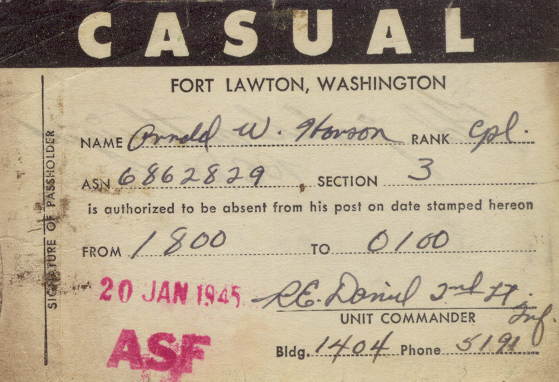 CASUAL
FORT LAWTON, WASHINGTON
SIGNATURE OF PASSHOLDER
NAME Arnold W. Hanson RANK Cpl.
ASN 6862829 SECTION 3
is authorized to be absent from his post on date stamped hereon
FROM 1800 TO 0100
20 JAN 1945 R.E. Daniel 2nd Lt. Inf.
UNIT COMMANDER
ASF
Bldg. 1404 Phone 5191